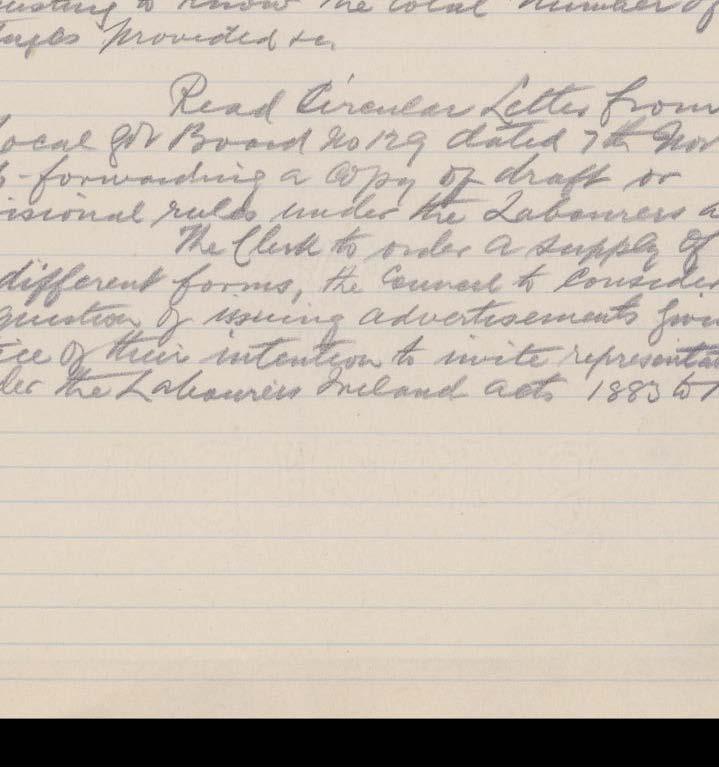 to know the total number of
provided &c.
Read Circular Letter from
ocal Gov Board No 129 dated 7th Nov
forwarding a copy of draft or
isional rules under the Labourers a
The Clerk to order a supply of
different forms, the Council to consider
question of issuing advertisements givin
ice of their intention to invite representat
der the Labourers Ireland Acts 1883 to 1